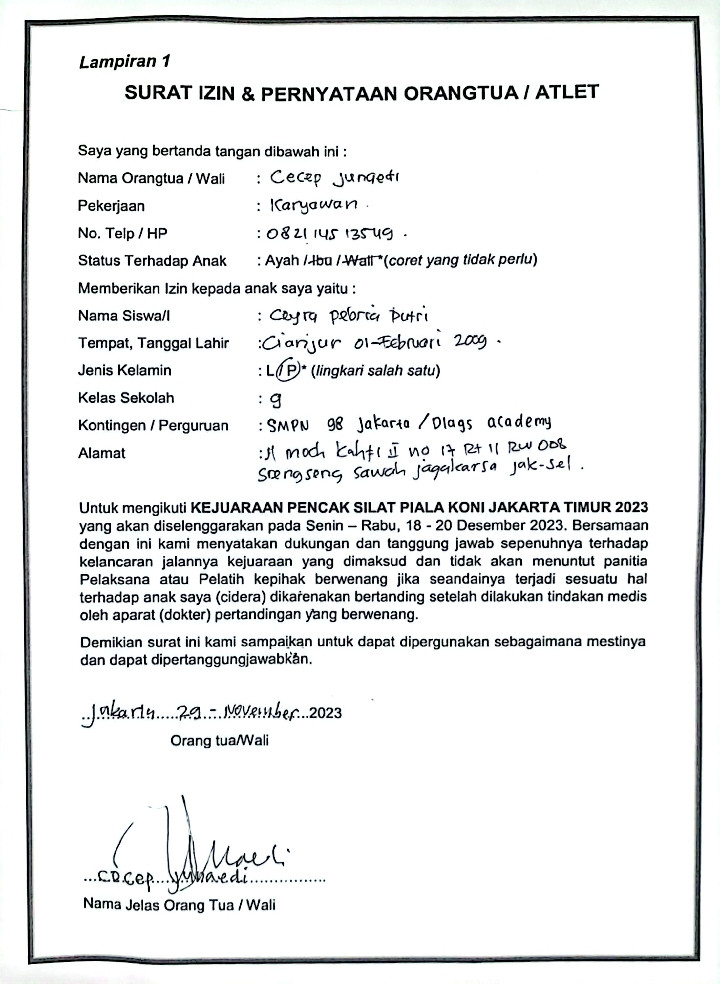 Lampiran 1
SURAT IZIN & PERNYATAAN ORANGTUA / ATLET
Saya yang bertanda tangan dibawah ini :
Nama Orangtua / Wali : Cecep Junaedi
Pekerjaan : Karyawan .
No. Telp / HP : 0821 145 13549 .
Status Terhadap Anak : Ayah / Ibu / Wali *(coret yang tidak perlu)
Memberikan Izin kepada anak saya yaitu :
Nama Siswa/I : Ceyra Pebria Putri
Tempat, Tanggal Lahir : Cianjur 01-Februari 2009 .
Jenis Kelamin : L/P* (lingkari salah satu)
Kelas Sekolah : 9
Kontingen / Perguruan : SMPN 98 Jakarta / Dlags academy
Alamat : Jl moch kahfi II no 17 Rt 11 RW 008
sawah jagakarsa jak-sel .
Untuk mengikuti KEJUARAAN PENCAK SILAT PIALA KONI JAKARTA TIMUR 2023
yang akan diselenggarakan pada Senin – Rabu, 18 - 20 Desember 2023. Bersamaan
dengan ini kami menyatakan dukungan dan tanggung jawab sepenuhnya terhadap
kelancaran jalannya kejuaraan yang dimaksud dan tidak akan menuntut panitia
Pelaksana atau Pelatih kepihak berwenang jika seandainya terjadi sesuatu hal
terhadap anak saya (cidera) dikarenakan bertanding setelah dilakukan tindakan medis
oleh aparat (dokter) pertandingan yang berwenang.
Demikian surat ini kami sampaikan untuk dapat dipergunakan sebagaimana mestinya
dan dapat dipertanggungjawabkan.
Jakarta 29 - November 2023
Orang tua/Wali
Cecep Junaedi
Nama Jelas Orang Tua / Wali